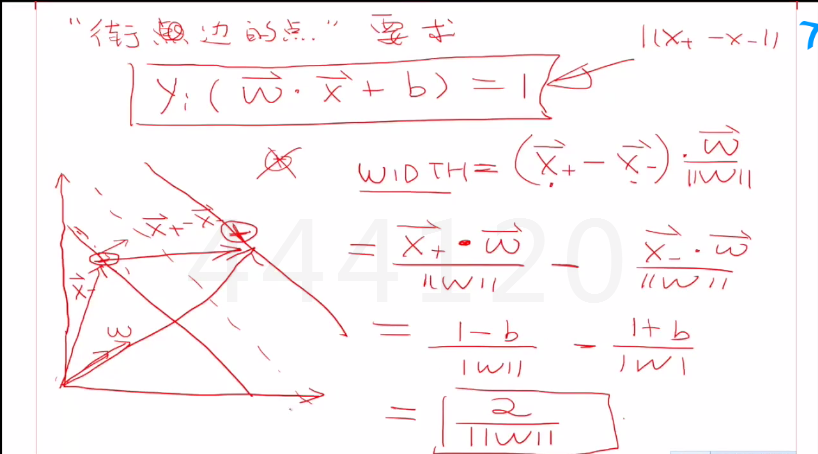 "街边的点" 要求
||(x₊ - x₋)||
7
yᵢ(w⃗·x⃗ + b) = 1
WIDTH = (x⃗₊ - x⃗₋)·w⃗/||w||
= x⃗₊·w⃗/||w|| - x⃗₋·w⃗/||w||
= 1-b/|w|| - 1+b/|w|
= 2/||w||
x⃗₊ - x⃗₋
x⃗₋
w
444120